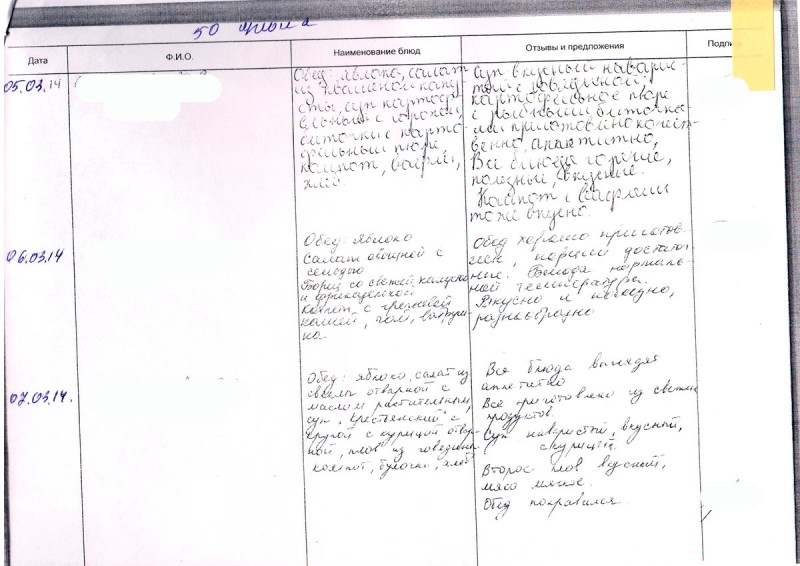 50
Дата
Ф.И.О.
Наименование блюд
Отзывы и предложения
Подпи
05.03.14
Обед: яблоко, салат
из квашеной капу
сты, суп картоф
ельный с горохом,
биточки с карто
фельным пюре
компот, вафли,
хлеб
Суп вкусный наварис
тый с говядиной,
картофельное пюре
с рыбными биточка
ми приготовлено качест
венно, аппетитно,
Все блюда горячие,
полезные, вкусные.
Компот с вафлями
тоже вкусно.
06.03.14
Обед: яблоко
Салат овощной с
сельдью
Борщ со свежей капустой
и фрикаделькой
Котлет с гречневой
кашей, чай, ватруш
ка.
Обед хорошо приготов
лен, порции достаточ
ные. Блюда нормаль
ной температуры.
Вкусно и полезно,
разнообразно
07.03.14.
Обед: яблоко, салат из
свеклы отварной с
маслом растительным,
суп "Крестьянский" с
крупой с курицей отвар
ной, плов из говядины
компот, булочка, хлеб
Все блюда выглядят
аппетитно
Всё приготовлено из свежих
продуктов.
Суп наваристый, вкусный,
с курицей.
Второе плов вкусный,
мясо мягкое.
Обед понравился.